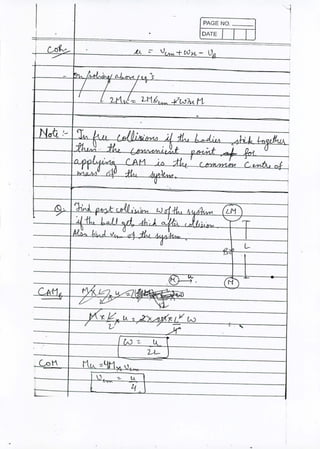 PAGE NO.
DATE
CoR
u = Vcm + ωx - VB
On solving above eq's
2Mu = 2MVcm +
Note :- In free collisions if the bodies stick together
then the convenient point for
applying CAM is the common Centre of
mass of the system.
Q. Find post collision ω of the system
if the ball gets stick after collision.
Also find Vcm of the system.
2M
L
B
M
u
M
CAMB
M x L/2 x u =
M x L/2 x u = 2 x M x L²/4 ω
ω = u/2L
COM Mu = 4M x Vcm
Vcm = u/4